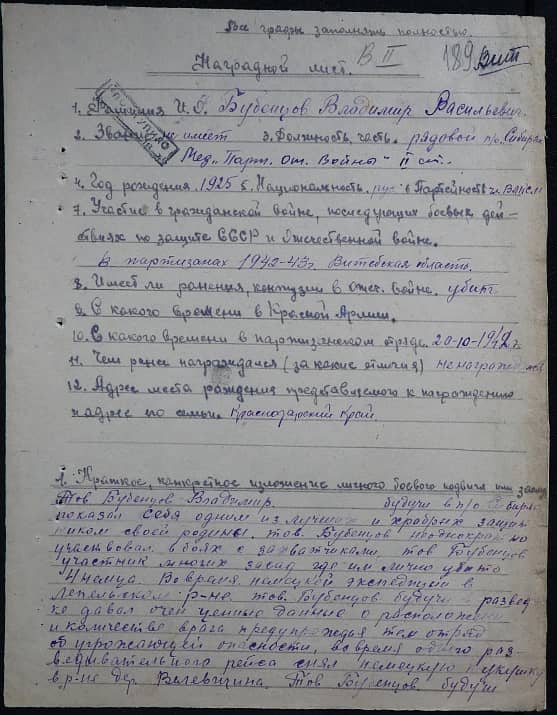 Все графы заполнять полностью.
В II 189 Вит
Наградной лист.
1. Фамилия И. О. Бубенцов Владимир Васильевич.
2. Звание не имеет 3. Должность, часть. рядовой п/о. Сибиряк
Мед „Парт. От. Войны" II ст.
4. Год рождения. 1925 5. Национальность. рус 6 Партейность чл. ВЛКСМ
7. Участие в гражданской войне, последующих боевых дей-
ствиях по защите СССР и Отечественной войне.
В партизанах 1942-43г. Витебская область.
8. Имеет ли ранения, контузии в Отеч. войне. убит.
9. С какого времени в Красной Армии.
10. С какого времени в партизанском отряде. 20-10-1942 г.
11. Чем ранее награждался (за какие отличия) не награждался
12. Адрес места рождения представляемого к награждению
и адрес его семьи. Краснодарский Край
1. Краткое, конкретное изложение личного боевого подвига или
Тов Бубенцов Владимир. будучи в п/о Сибиряк
показал себя одним из лучших и храбрых защит
ником своей родины. тов. Бубенцов неоднократно
участвовал в боях с захватчиками, тов Бубенцов
участник многих засад где им лично убито
4 немца. Во время немецкой экспедиции в
Лепельском р-не. тов. Бубенцов будучи в развед
ке давал очень ценные данные о расположении
и количестве врага предупреждая тем отряд
об угрожающей опасности, во время одного раз-
ведывательного рейса снял немецкую кукушку
в р-не дер. Велевщина. Тов Бубенцов. будучи